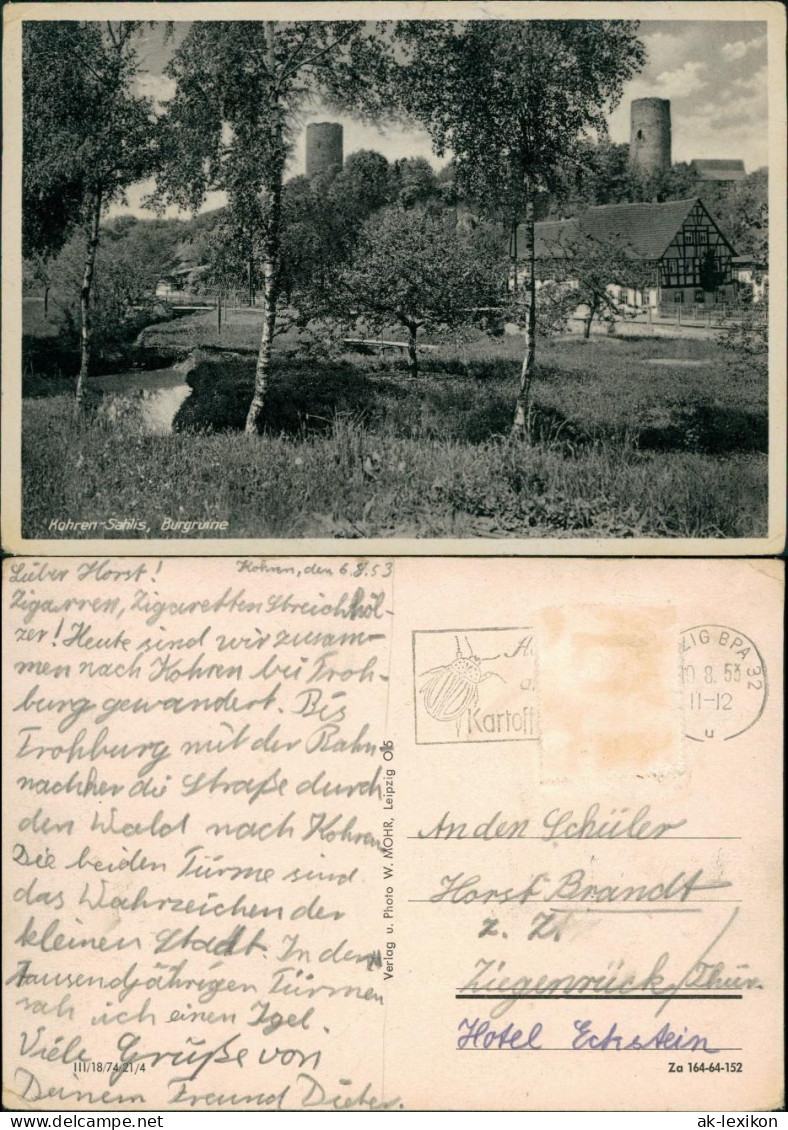 Kohren-Sahlis, Burgruine
Lieber Horst!
Kohren, den 6.8.53
Zigarren, Zigaretten Streichhöl-
zer! Heute sind wir zusam-
men nach Kohren bei Froh-
burg gewandert. Bis
Frohburg mit der Bahn
nachher die Straße durch
den Wald nach Kohren
Die beiden Türme sind
das Wahrzeichen der
kleinen Stadt. In den
tausendjährigen Türmen
sah ich einen Igel.
Viele Grüße von
Deinem Freund Dieter.
III/18/74 21/4
Verlag u. Photo W. MOHR, Leipzig O5
Kartoff
ZIG BPA 32
10.8.53
11-12
u
An den Schüler
Horst Brandt
z. Zt.
Ziegenrück/Thür.
Hotel Eckstein
Za 164-64-152
delcampe.net
ak-lexikon